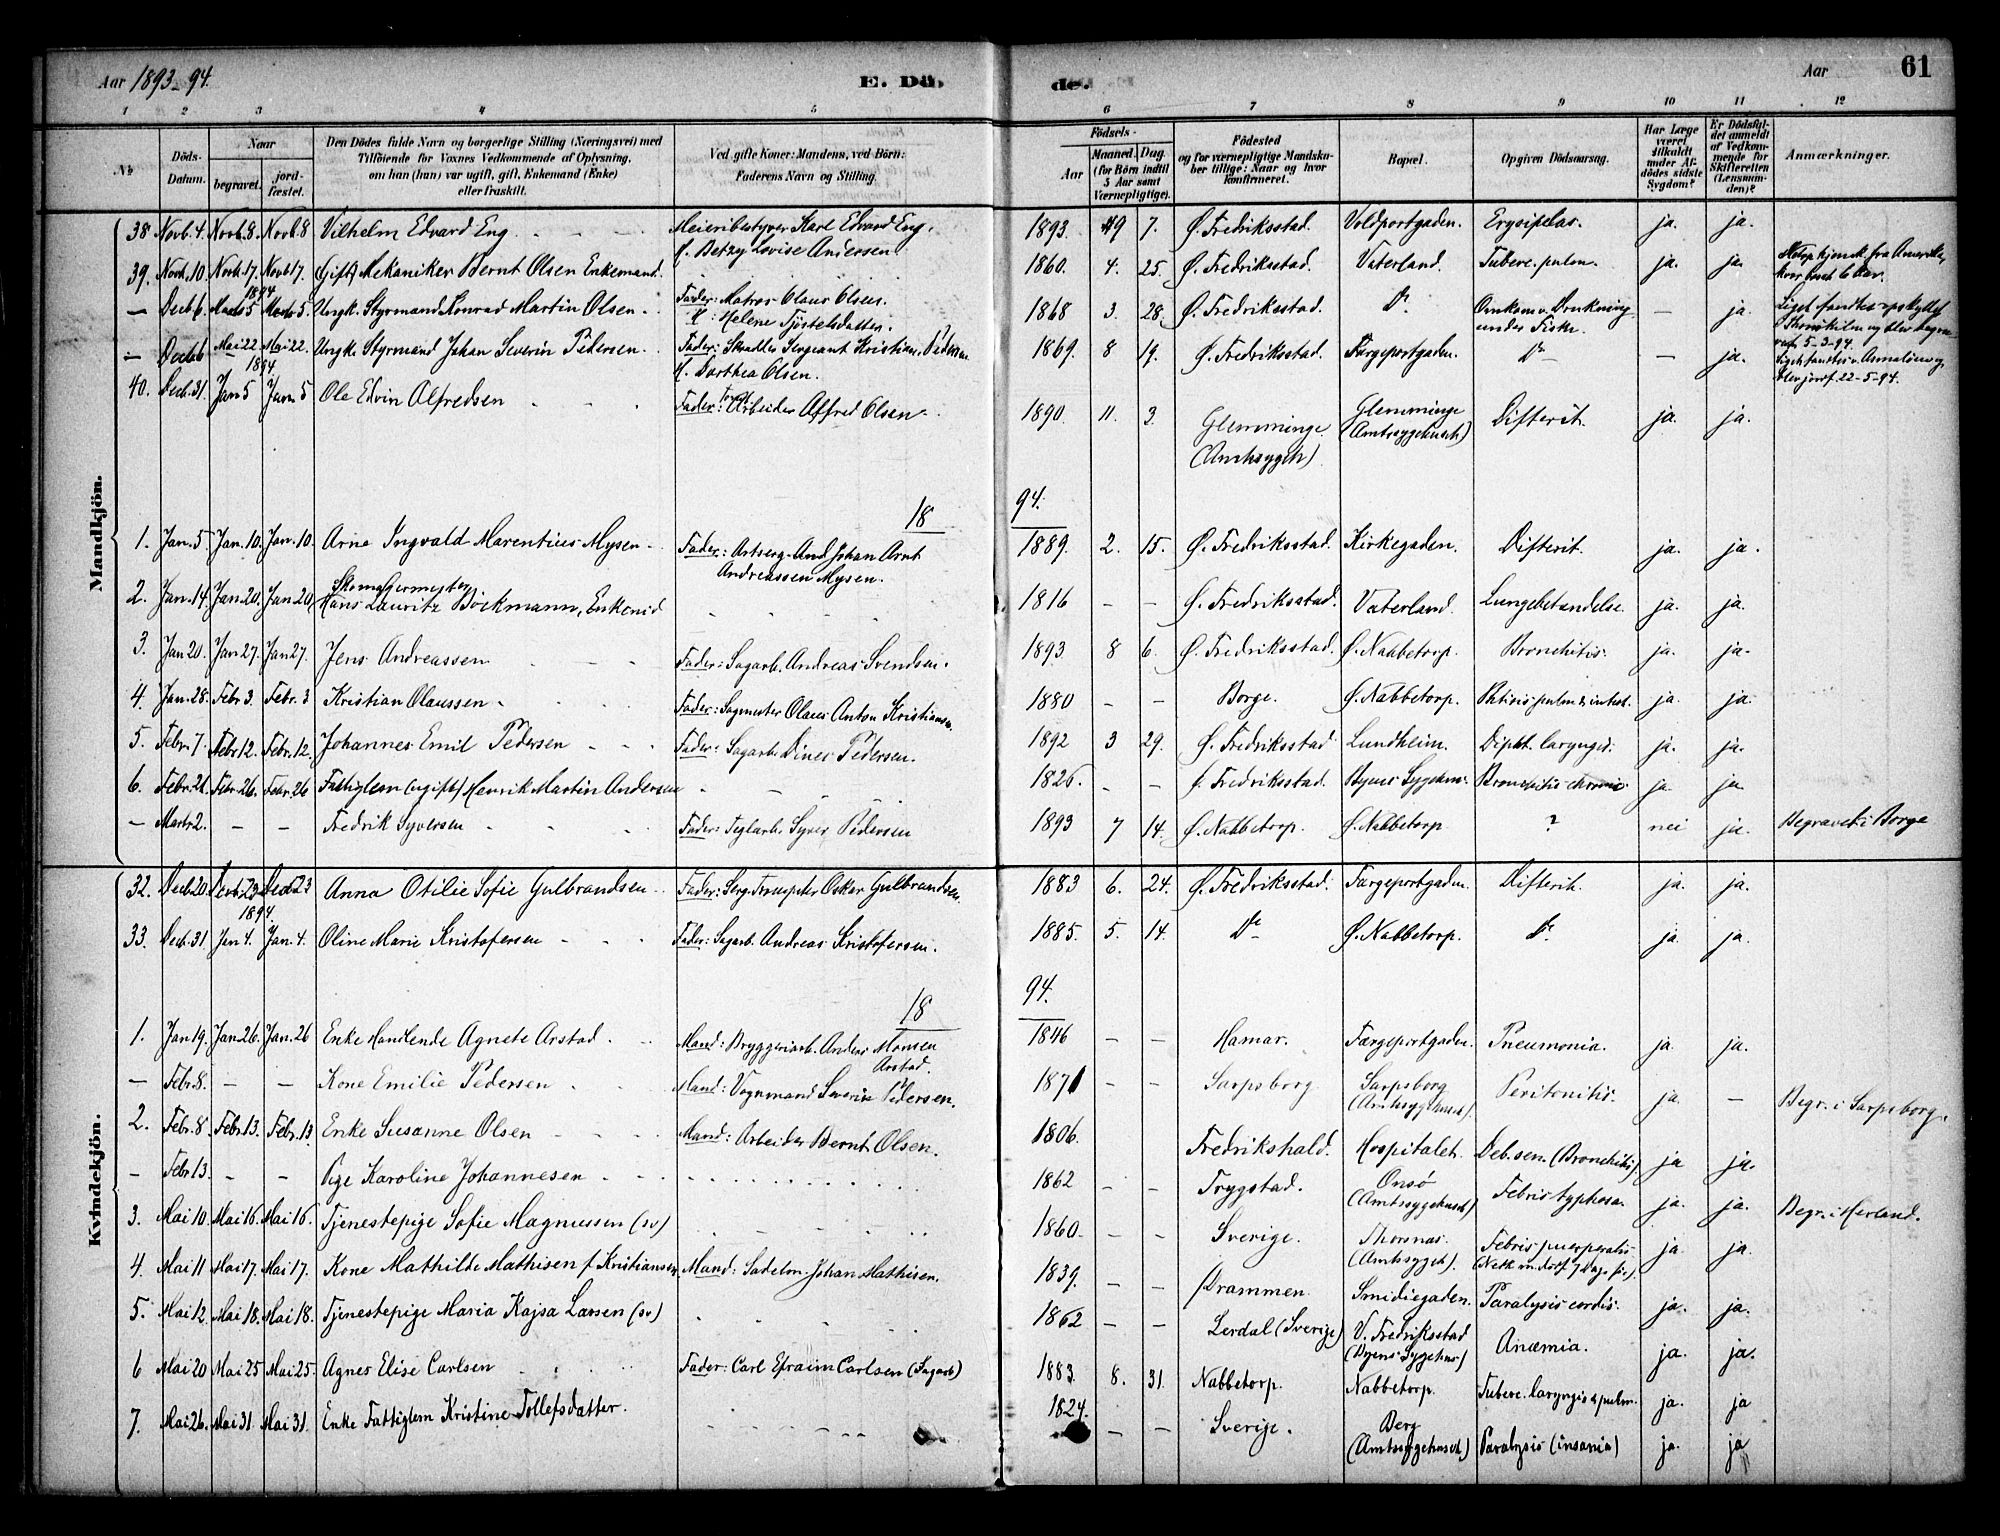 Aar 1893-94.
E. Dö-
de.
Aar
61
1 2 3 4 5 6 7 8 9 10 11 12
No
Döds-Datum.
Naar
begravet.
jord-fæstet.
Den Dödes fulde Navn og borgerlige Stilling (Næringsvei) med
Tilföiende for Voxnes Vedkommende af Oplysning,
om han (hun) var ugift, gift, Enkemand (Enke)
eller fraskilt.
Ved gifte Koner: Mandens, ved Börn:
Faderens Navn og Stilling.
Födsels-
Aar
Maaned. Dag.
(for Börn indtil
5 Aar samt
Værnepligtige).
Födested
og for værnepligtige Mandska-
ber tillige: Naar og hvor
konfirmeret.
Bopæl.
Opgiven Dödsaarsag.
Har Læge
været
tilkaldt
under Af-
dödes sidste
Sygdom?
Er Dödsfal-
det anmeldt
af Vedkom-
mende for
Skifteretten
(Lensman-
den)?
Anmærkninger.
Mandkjön.
38 Novb. 4. Novb. 8. Novb. 8 Vilhelm Edvard Eng Meieribestyrer Karl Edvard Eng. M. Betzy Lovise Andersen 1893. 9 7. Ø. Fredriksstad. Voldportgaden. Erysipelas. ja. ja.
39. Novb. 10. Novb. 17. Novb. 17. (Gift) Mekaniker Bernt Olsen Enkemand. 1860. 4. 25. Ø. Fredriksstad. Vaterland. Tuberc. pulm. ja. ja. fra Amerika,
1894
— Decb 6. Marts 5 Marts 5. Ungk. Styrmand Konrad Martin Olsen Fader: Matros Claus Olsen. M: Helene 1868 3. 28. Ø. Fredriksstad. Do Omkom v. Drukning under Fiske. — ja Liget fandtes 5-3-94.
— Decb 6 Mai 22 Mai 22. Ungk. Styrmand Johan Severin Pedersen Fader: Sergeant Kristian Pedersen M. Dorthea Olsen. 1869. 8 19. Ø. Fredriksstad. Færgeportgaden. Do — ja. Liget fandtes v. blev jordf. 22-5-94.
1894
40. Decb. 31. Jan 5 Jan. 5 Ole Edvin Alfredsen Fader: Arbeider Alfred Olsen 1890. 11. 3. Glemminge (Amtssygeh) Glemminge (Amtssygehuset) Difterit. ja. ja.
18 94.
1. Jan. 5 Jan. 10. Jan. 10. Arne Ingvald Marentius Mysen Fader: And. Johan Arnt Andreassen Mysen. 1889. 2. 15. Ø. Fredriksstad. Kirkegaden. Difterit. ja. ja.
2. Jan. 14. Jan. 20. Jan. 20. Skomagermester Hans Lauritz Böckmann, Enkemd 1816 — — Ø. Fredriksstad. Vaterland. Lungebetændelse. ja. ja.
3. Jan 20. Jan 27. Jan 27. Jens Andreassen Fader: Sagarb. Andreas Svendsen. 1893 8 6. Ø. Fredriksstad. Ø. Nabbetorp. Bronchitis. ja. ja.
4. Jan. 28. Febr 3. Febr. 3 Kristian Olaussen Fader: Sagmester Olaus Anton Kristiansen 1880 — — Borge. Ø. Nabbetorp. Phtisis pulm & intest. ja. ja.
5. Febr. 7. Febr. 12. Febr. 12. Johannes Emil Pedersen Fader: Sagarb. Dines Pedersen. 1892 3 29. Ø. Fredriksstad. Lundheim. Dipht. laryngis. ja. ja.
6. Febr. 21. Febr. 26. Febr. 26 Fattiglem (ugift) Henrik Martin Andersen 1826. — — Fredriksstad. Byens Sygehus. Bronchitis chronic ja ja.
— Marts 2. — — Fredrik Syversen Fader: Teglarb. Syver Pedersen 1893 7 14. Ø. Nabbetorp. Ø. Nabbetorp ? nei ja. Begravet i Borge
Kvindekjön.
32. Decb 20. Decb. 23 Decb 23 Anna Otilie Sofie Gulbrandsen Fader: Serg. Trompeter Oskar Gulbrandsen. 1883 6. 24. Ø. Fredriksstad. Færgeportgaden. Difterit. ja. ja.
1894
33. Decb. 31. Jan 4. Jan. 4. Oline Marie Kristofersen Fader: Sagarb. Andreas Kristofersen. 1885. 5. 14. Do Ø. Nabbetorp. Do ja. ja.
18 94.
1. Jan 19. Jan 26. Jan. 26 Enke Handlende Agnete Arstad. Mand: Bryggeriarb. Anders Monsen Arstad. 1846 — — Hamar. Færgeportgaden. Pneumonia. ja. ja.
— Febr. 8. — — Kone Emilie Pedersen Mand: Vognmand Severin Pedersen. 1871 — — Sarpsborg Sarpsborg (Amtssygehuset). Peritonitis. ja. — Begr. i Sarpsborg.
2. Febr. 8 Febr. 13. Febr. 13 Enke Susanne Olsen Mand: Arbeider Bernt Olsen. 1806. Fredrikshald. Hospitalet. Deb. sen. (Bronchitis). ja ja.
— Febr. 13. — — Pige Karoline Johannesen 1862 — — Trygstad. Onsö (Amtssygehuset) Febris typhosa. ja. ja. Begr. i Herland.
3. Mai 10. Mai 16. Mai 16. Tjenestepige Sofie Magnussen (sv) 1860. Sverige. Thorsnæs (Amtssygeh). Febris puerperalis. ja ja.
4. Mai 11 Mai 17. Mai 17. Kone Mathilde Mathisen f. Kristiansen Mand: Sadelm. Johan Mathisen. 1839. — — Drammen Smediegaden. Paralysis cordis. ja. ja.
5. Mai 12. Mai 18. Mai 18. Tjenestepige Maria Kajsa Larsen (sv) 1862 — — Lerdal (Sverige) V. Fredriksstad (Byens Sygehus) Anæmia. ja. ja.
6 Mai 20 Mai 25 Mai 25. Agnes Elise Carlsen Fader: Carl Efraim Carlsen (Sagarb) 1883. 8. 31. Nabbetorp. Nabbetorp. Tuberc. laryngis & pulm. ja. ja
7. Mai 26. Mai 31. Mai 31. Enke Fattiglem Kristine Tollefsdatter. 1824. — — Sverige. Berg (Amtssygehuset) Paralysis (insania) ja. ja